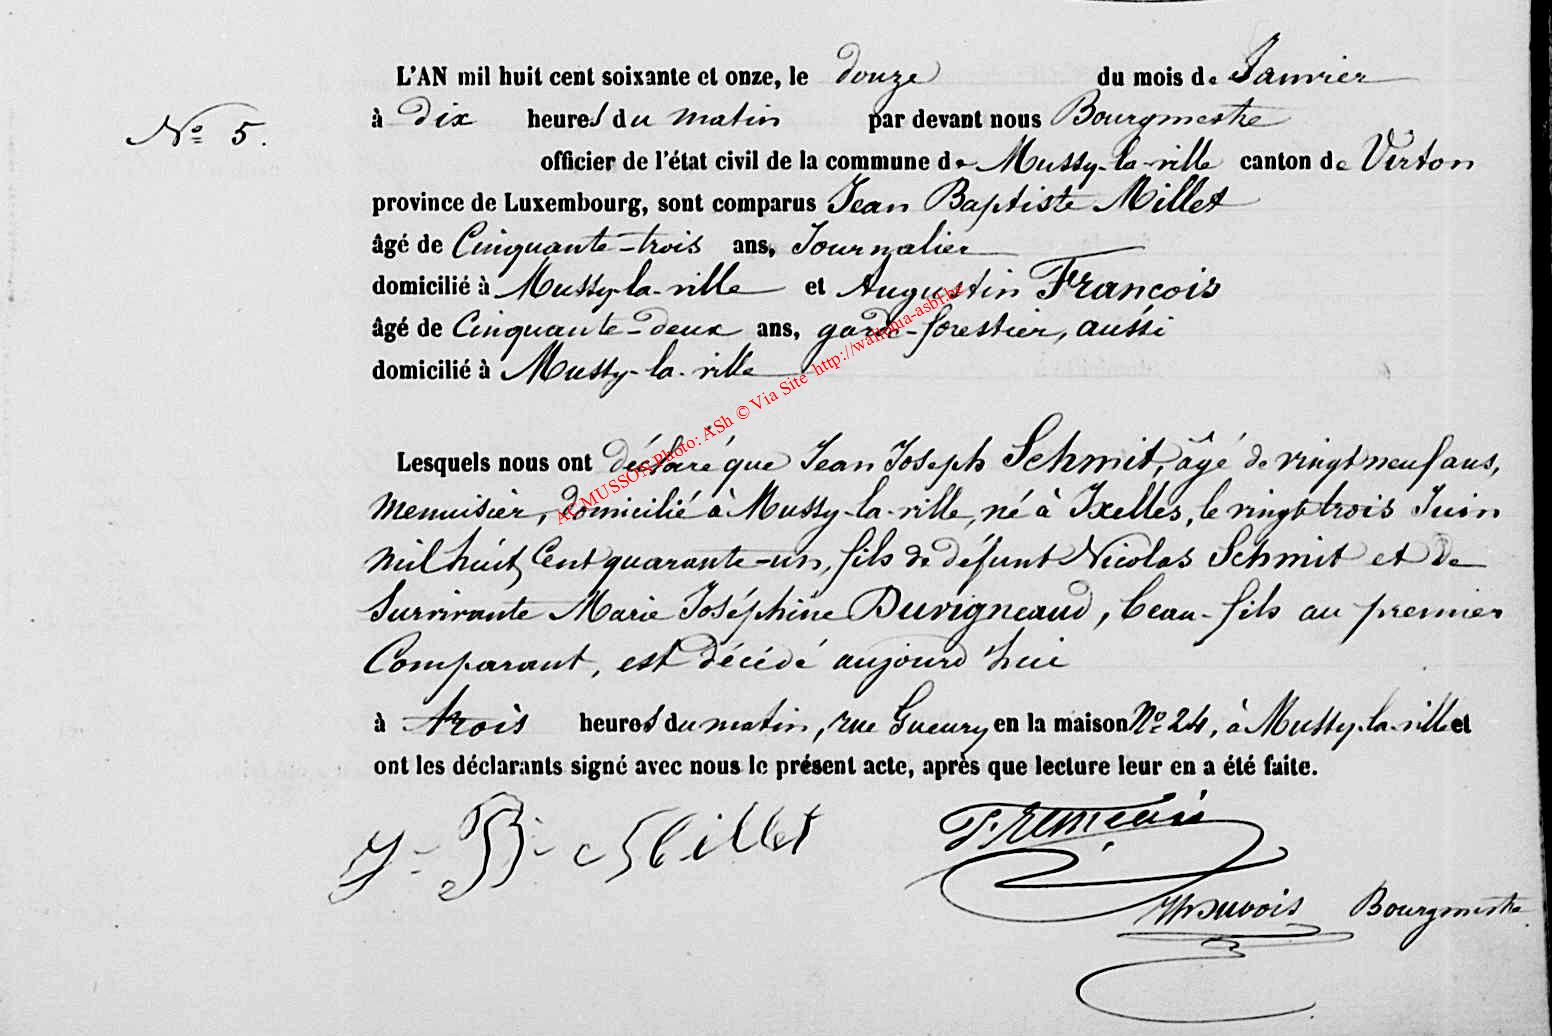 L'AN mil huit cent soixante et onze, le douze du mois de Janvier
N° 5.
à dix heures du matin par devant nous Bourgmestre
officier de l'état civil de la commune de Mussy-la-ville canton de Virton
province de Luxembourg, sont comparus Jean Baptiste Millet
âgé de Cinquante-trois ans, Journalier
domicilié à Mussy-la-ville et Augustin François
âgé de Cinquante-deux ans, garde-forestier, aussi
domicilié à Mussy-la-ville
ACMUSSON Photo: ASh © Via Site http://wallonia-asbl.be
Lesquels nous ont déclaré que Jean Joseph Schmit, âgé de vingt neuf ans,
menuisier, domicilié à Mussy-la-ville, né à Ixelles, le vingt trois Juin
mil huit Cent quarante-un, fils de défunt Nicolas Schmit et de
Survivante Marie Joséphine Duvigneaud, beau-fils au premier
Comparant, est décédé aujourd'hui
à trois heures du matin, rue Gueury en la maison N° 24, à Mussy-la-ville et
ont les déclarants signé avec nous le présent acte, après que lecture leur en a été faite.
J- B- Millet
Bourgmestre